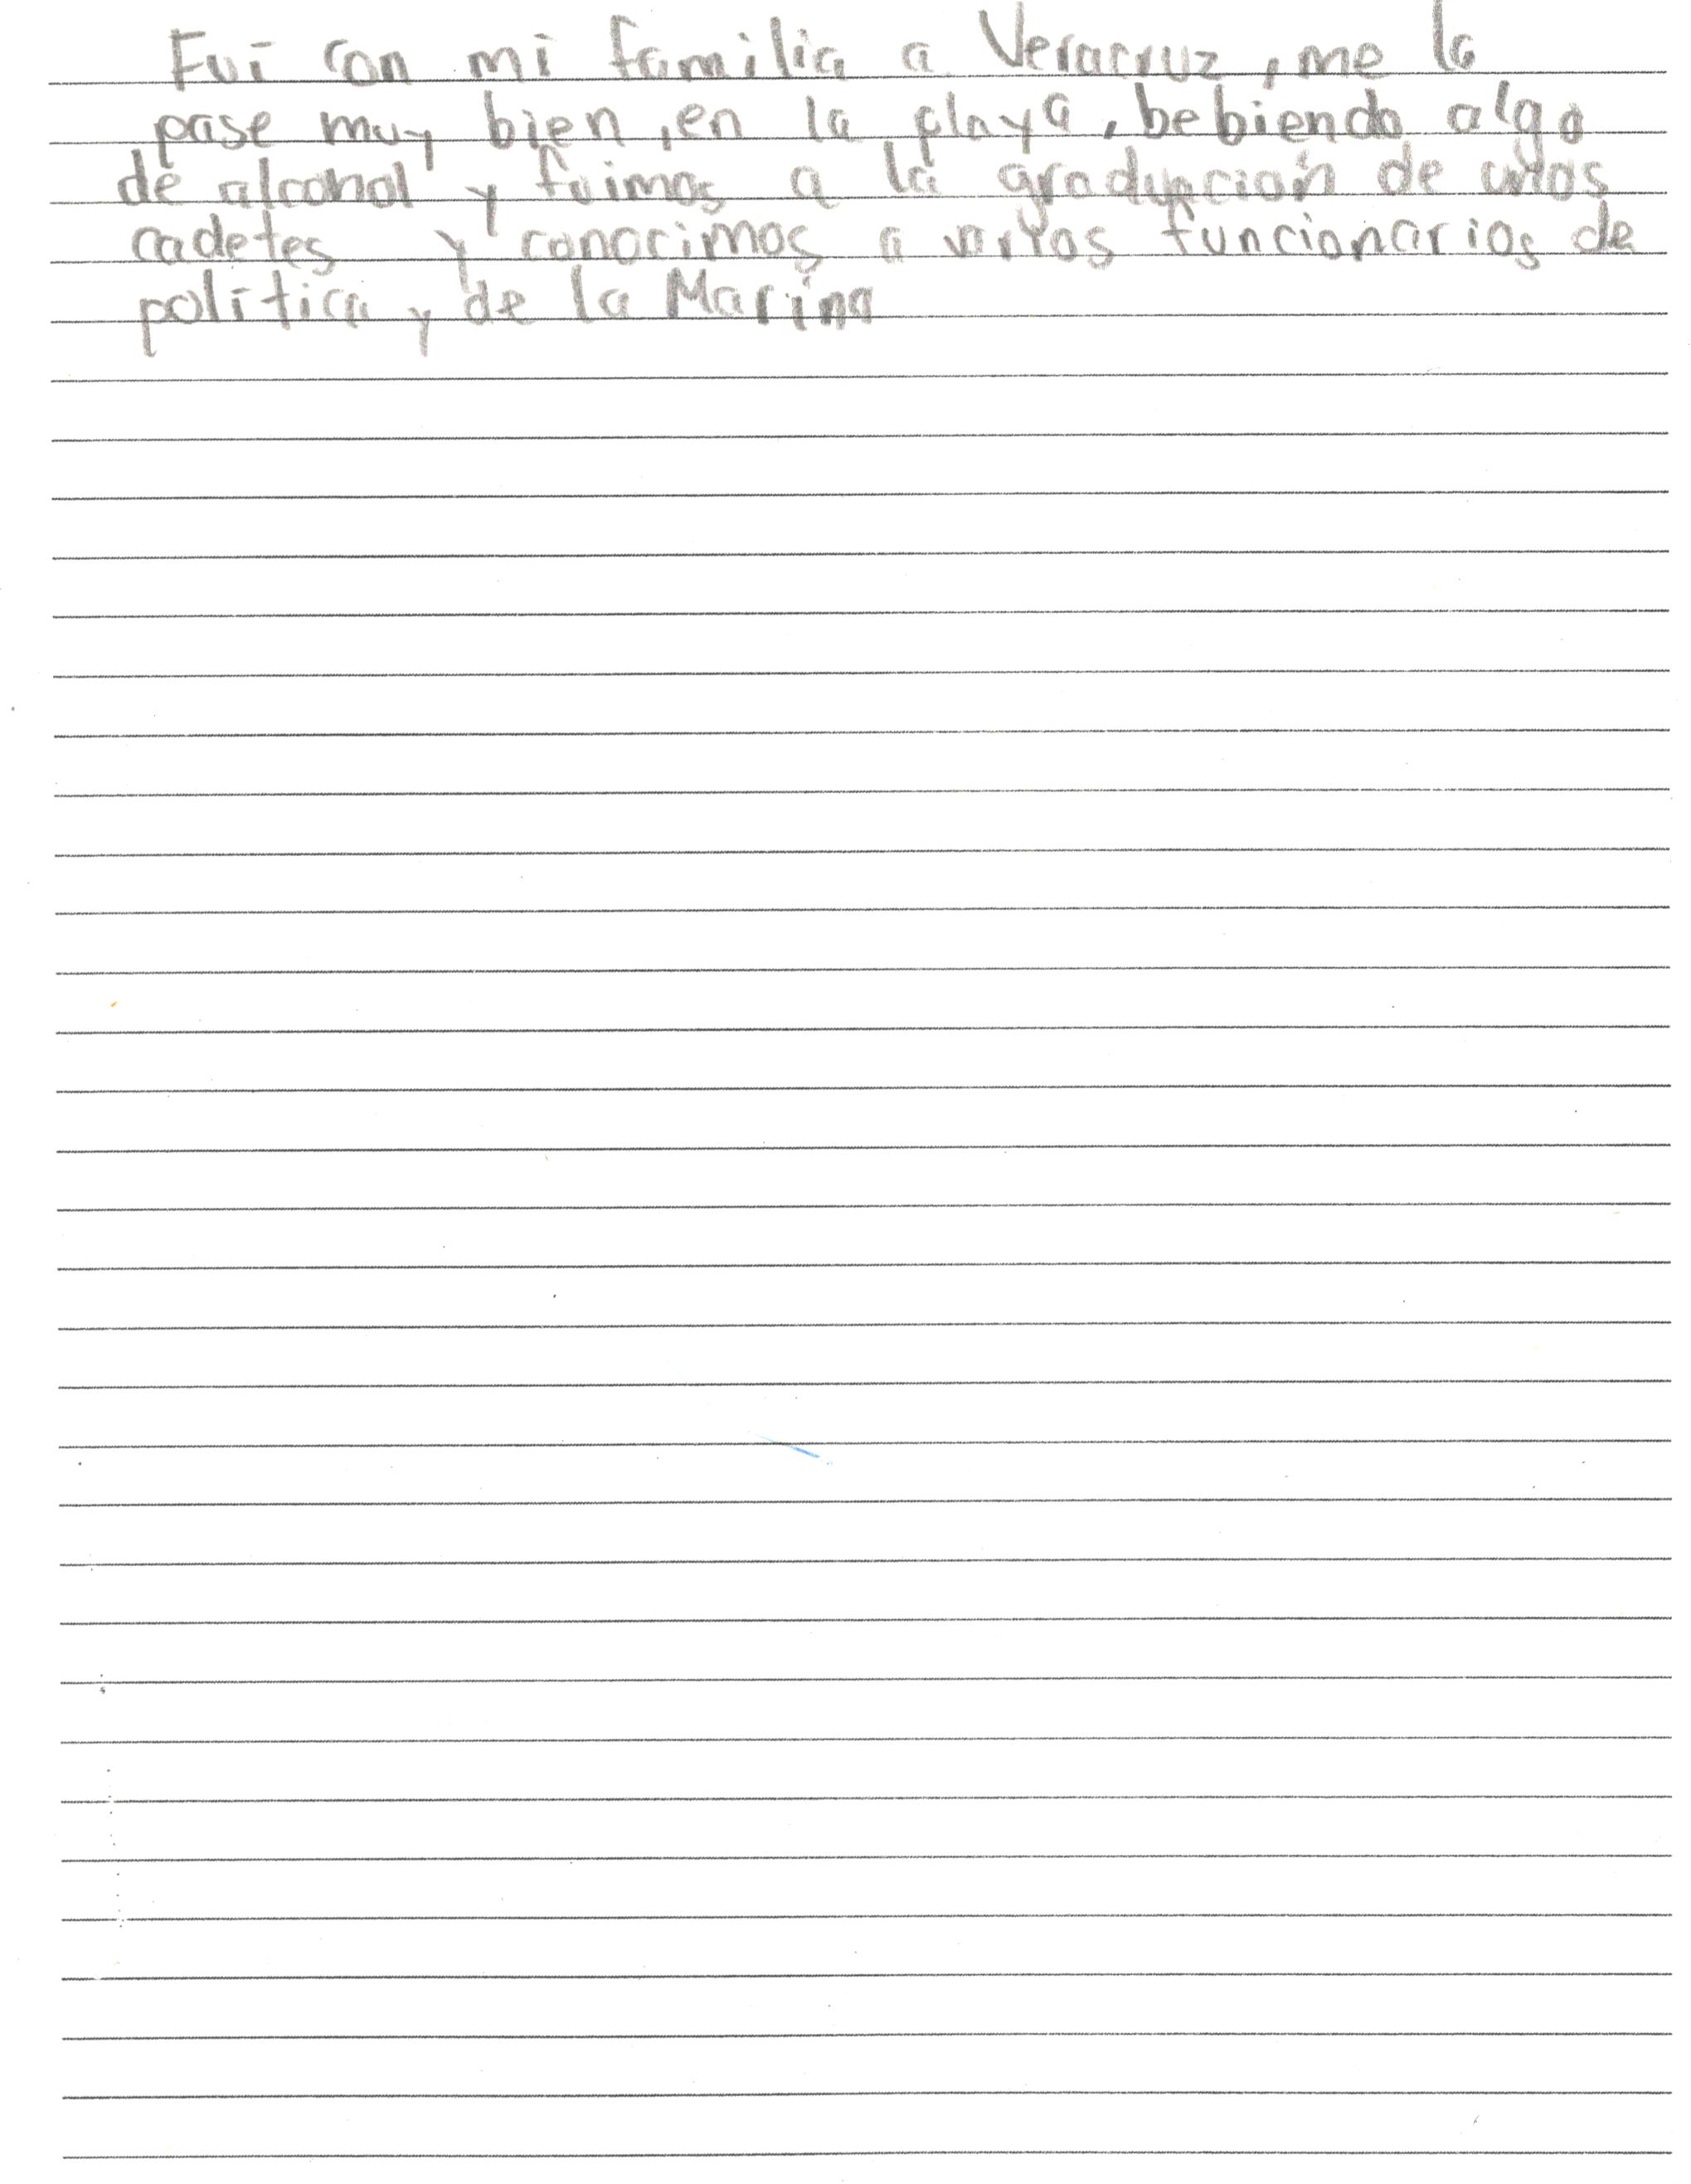 Fui con mi familia a Veracruz, me la
pase muy bien, en la playa, bebiendo algo
de alcohol y fuimos a la graduación de unos
cadetes y conocimos a varios funcionarios de
política y de la Marina